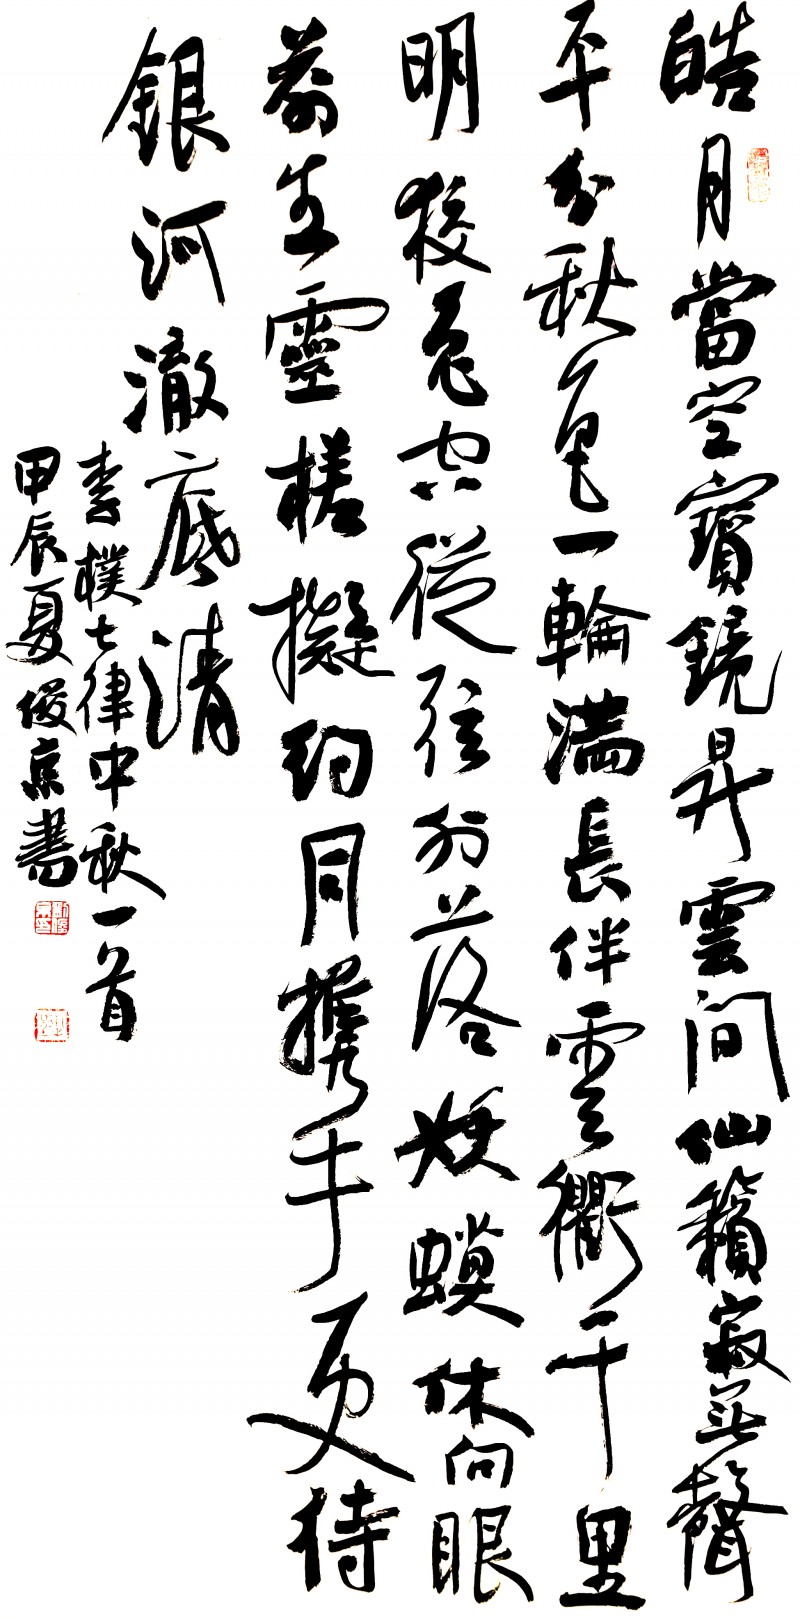 皓月當空寶鏡昇雲間仙籟寂無聲
平分秋色一輪滿長伴雲衢千里
明狡兔空從弦外落妖蟆休向眼
前生靈槎擬約同攜手更待
銀河澈底清
李樸七律中秋一首
甲辰夏俊京書